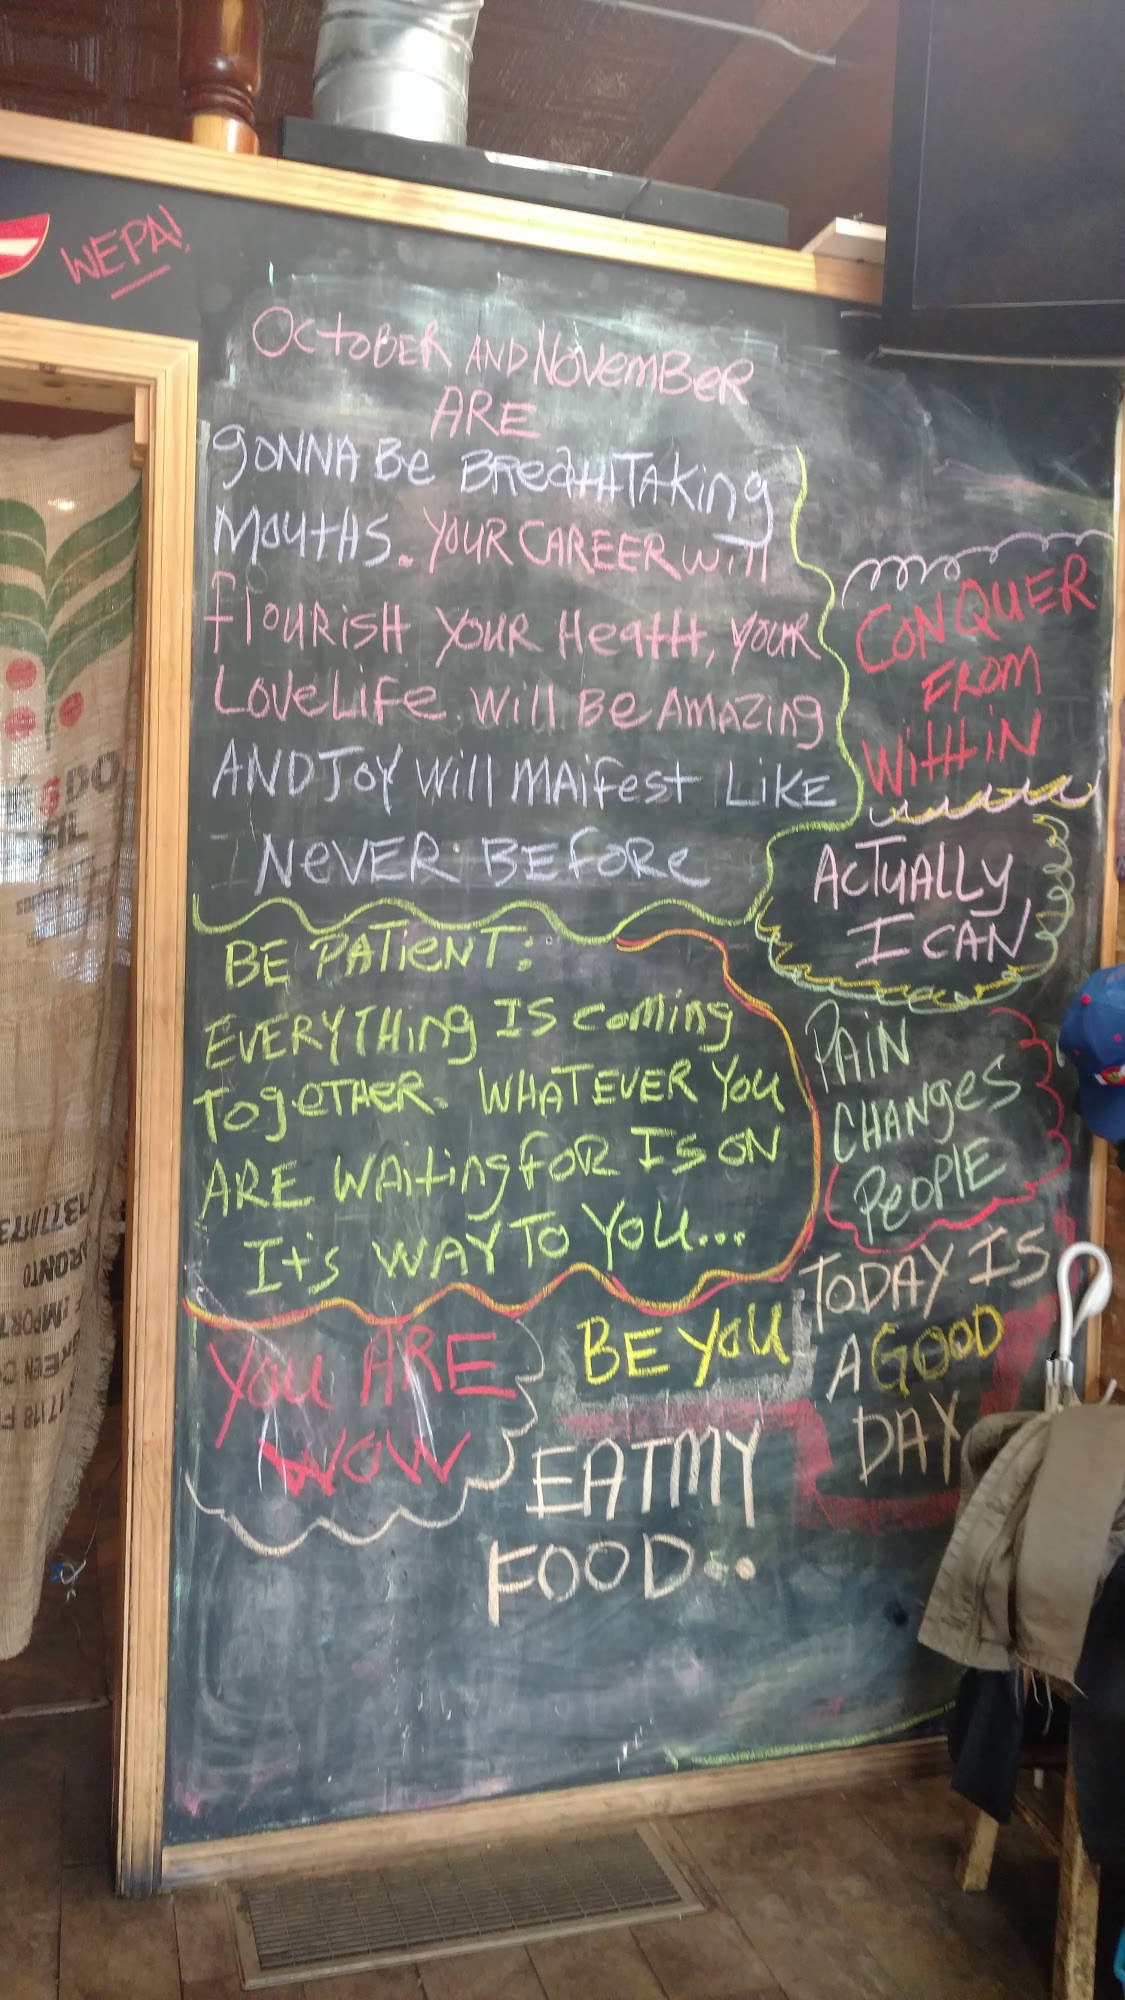 WEPA!
OCTOBER AND NOVEMBER
ARE
gONNA Be BReathTAKing
MOUTHS. YOUR CAREER will
flOURiSH YOUR HeattH, YOUR
LOVELiFe. Will Be AMAZing
AND JOY Will MAifest LiKE
NeVER BEfoRe
BE PATieNT:
EVERYTHing IS coming
TogeTHER. WHATEVER YOU
ARE WAitingfOR IS ON
It's WAY TO YOU...
YOU ARE
WOW
BE YOU
EAT MY
FOOD..
CONQUER
FROM
WitHiN
ACTUALLY
I CAN
PAiN
CHANgeS
PeOPlE
TODAY IS
A GOOD
DAY
DO
RONTO
IMPORT